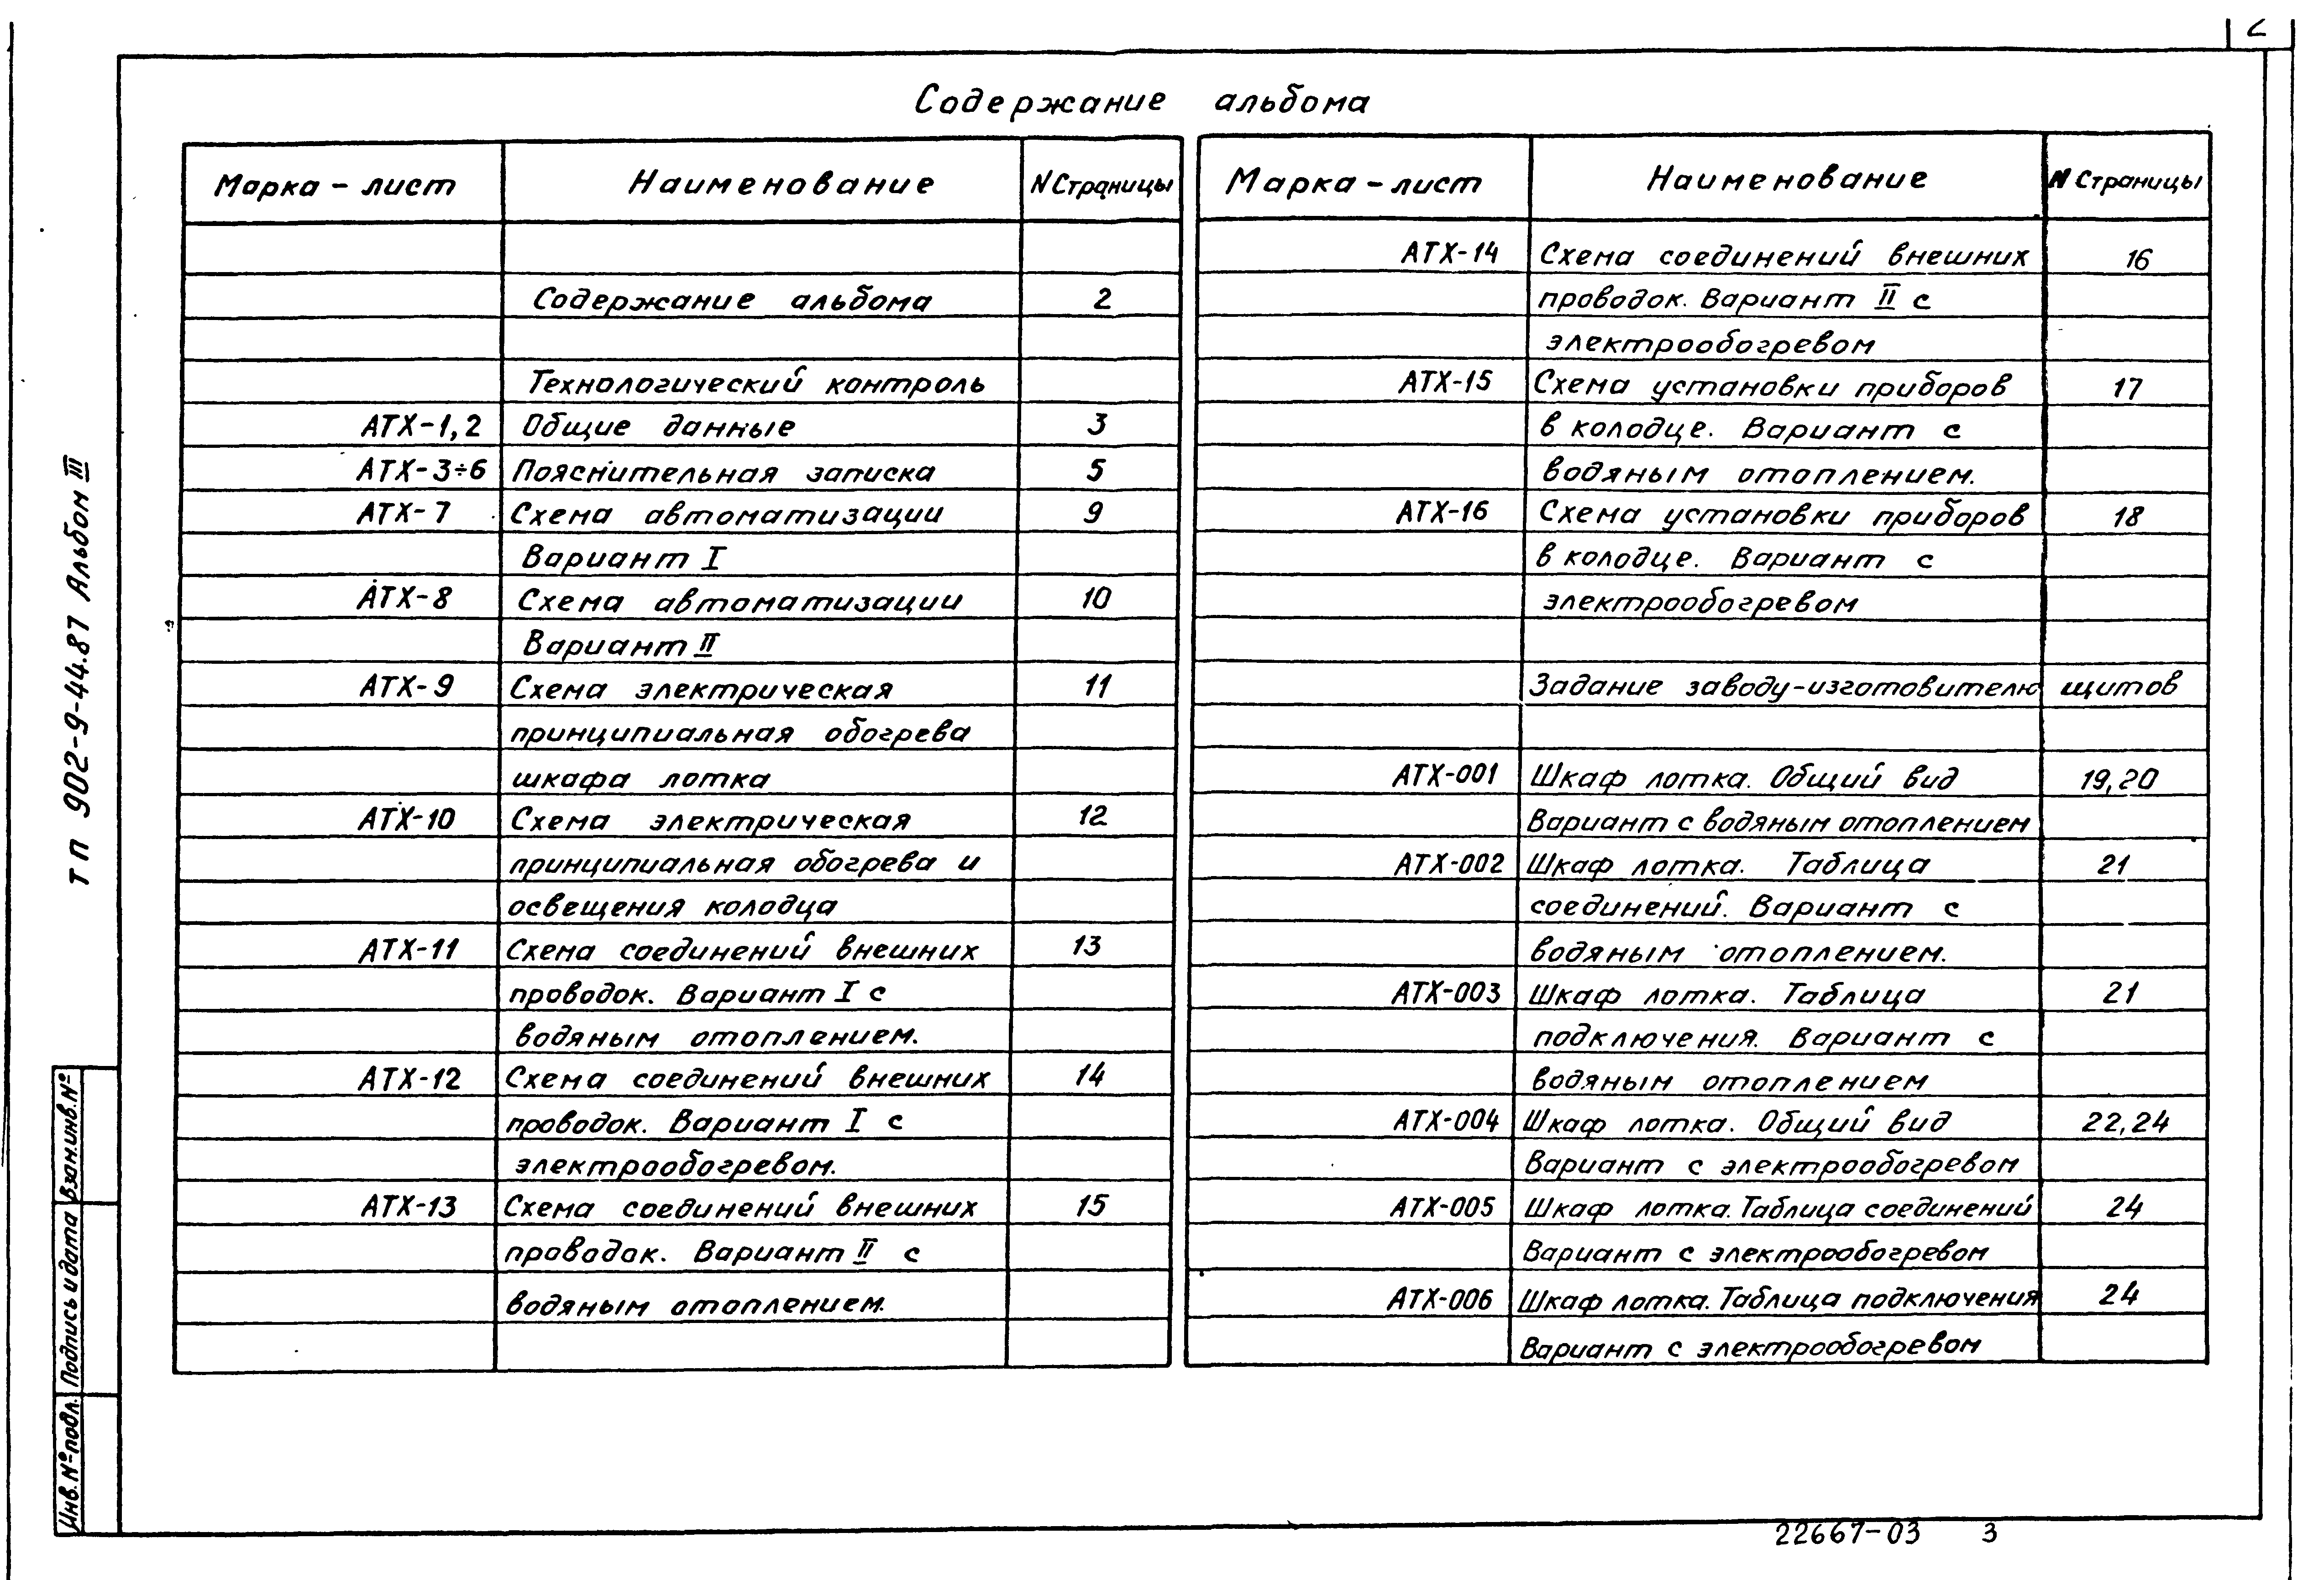 2
Содержание альбома
Марка - лист Наименование N Страницы
Содержание альбома 2
Технологический контроль
АТХ-1,2 Общие данные 3
АТХ-3÷6 Пояснительная записка 5
АТХ-7 Схема автоматизации 9
Вариант I
АТХ-8 Схема автоматизации 10
Вариант II
АТХ-9 Схема электрическая 11
принципиальная обогрева
шкафа лотка
АТХ-10 Схема электрическая 12
принципиальная обогрева и
освещения колодца
АТХ-11 Схема соединений внешних 13
проводок. Вариант I с
водяным отоплением.
АТХ-12 Схема соединений внешних 14
проводок. Вариант I с
электрообогревом.
АТХ-13 Схема соединений внешних 15
проводок. Вариант II с
водяным отоплением.
Марка - лист Наименование N Страницы
АТХ-14 Схема соединений внешних 16
проводок. Вариант II с
электрообогревом
АТХ-15 Схема установки приборов 17
в колодце. Вариант с
водяным отоплением.
АТХ-16 Схема установки приборов 18
в колодце. Вариант с
электрообогревом
Задание заводу-изготовителю щитов
АТХ-001 Шкаф лотка. Общий вид 19,20
Вариант с водяным отоплением
АТХ-002 Шкаф лотка. Таблица 21
соединений. Вариант с
водяным отоплением.
АТХ-003 Шкаф лотка. Таблица 21
подключения. Вариант с
водяным отоплением
АТХ-004 Шкаф лотка. Общий вид 22,24
Вариант с электрообогревом
АТХ-005 Шкаф лотка. Таблица соединений 24
Вариант с электрообогревом
АТХ-006 Шкаф лотка. Таблица подключения 24
Вариант с электрообогревом
тп 902-9-44.87 Альбом III
Взам.инв.№
Подпись и дата
Инв.№подл.
22667-03 3